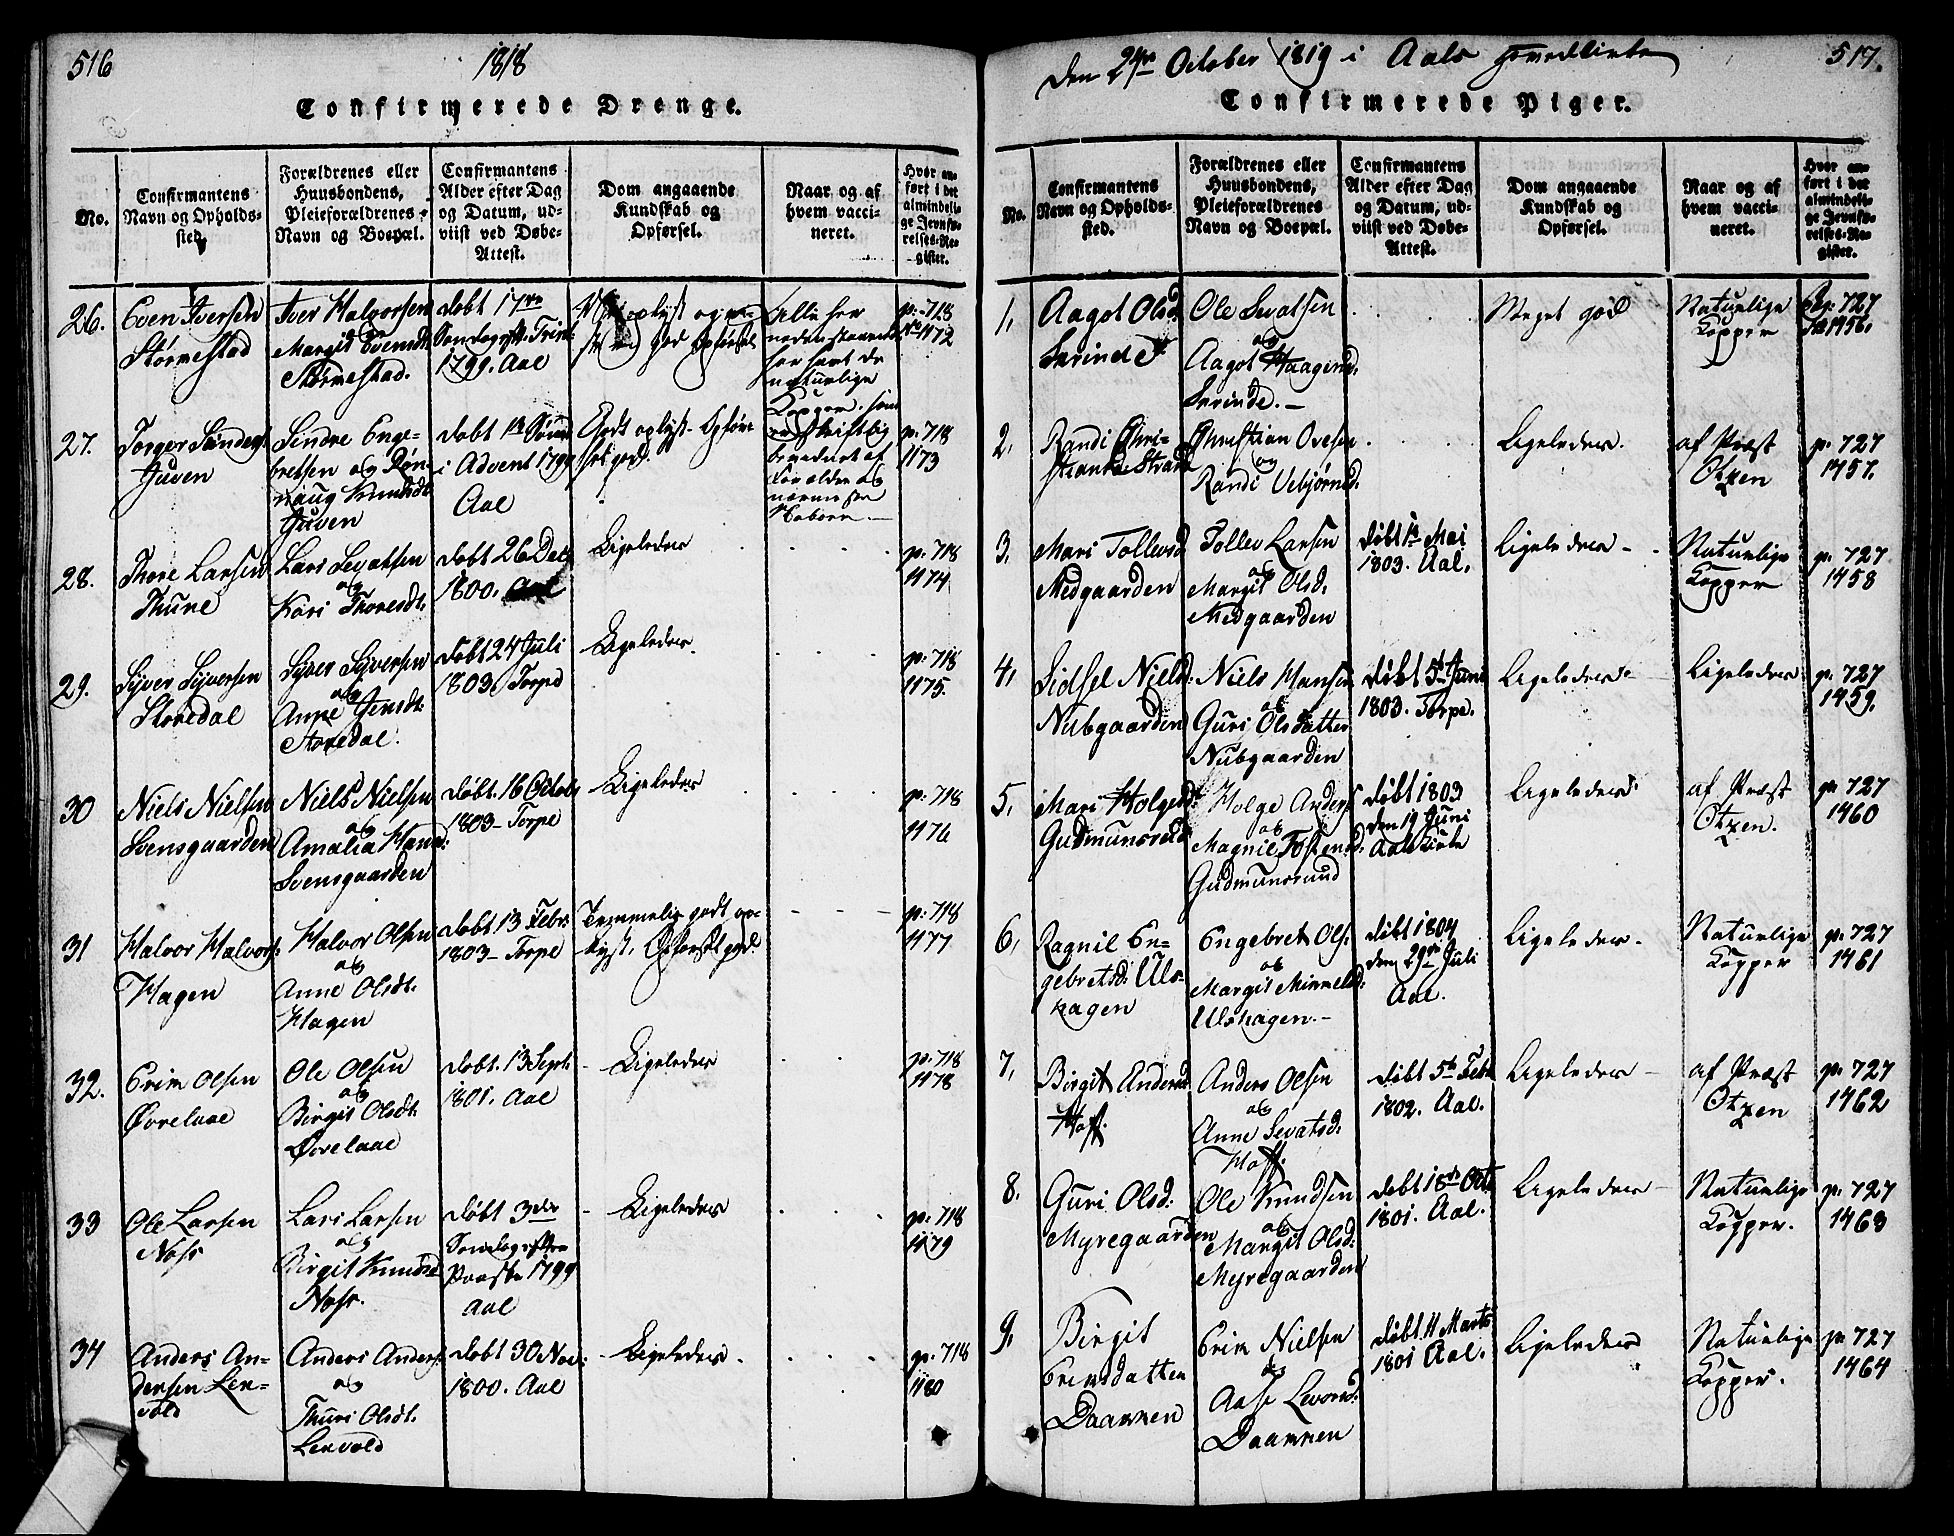 516
1818
Confirmerede Drenge.
No.
Confirmantens
Navn og Opholds-
sted.
Forældrenes eller
Huusbondens,
Pleieforældrenes
Navn og Boepæl.
Confirmantens
Alder efter Dag
og Datum, ud-
viist ved Døbe-
Attest.
Dom angaaende
Kundskab og
Opførsel.
Naar og af
hvem vacci-
neret.
Hvor an-
ført i det
almindeli-
ge Jevnfø-
relses-Re-
gister.
26.
Even Iversen
Størmestad
Iver Halvorsen
Margit Evensdt.
Størmestad.
døbt 17de
Søndag eft. Trint.
1799. Aal
oplyst og
god opførsel
Alle her
nedenstaaende
har havt de
naturlige
Kopper, som
skriftlig
bevidnet af
Forældre og
nærmeste
Naboer.
p. 718
No 1172
27.
Torger Sindres.
Juven
Sindre Enge-
bretsen og Røn-
naug Knudsdt.
Juven
døbt 1te Sønd.
i Advent 1799
Aal
Godt oplyst. Opfør-
sel god.
p. 718
1173
28.
Thore Larsen
Thune
Lars Sevatsen
og
Kari Thoresdt.
døbt 26 Dec.
1800. Aal
Ligeledes
p. 718
1174
29.
Syver Syversen
Storedal
Syver Syversen
og
Anne Jensdt.
Storedal.
døbt 24 Juli
1803. Torpe
Ligeledes
p. 718
1175.
30
Niels Nielsen
Svensgaarden
Niels Nielsen
og
Amalia Hansd.
Svensgaarden
døbt. 16 Octob.
1803 - Torpe
Ligeledes
p. 718
1176
31
Halvor Halvors.
Hagen
Halvor Olsen
og
Anne Olsdt.
Hagen
døbt 13 Febr.
1803 - Torpe
Temmelig godt op-
lyst. Opførsel god.
p. 718
1177
32.
Erik Olsen
Øvrelaae
Ole Olsen
og
Birgit Olsdt.
Øvrelaae
døbt. 13 Sept.
1801. Aal
Ligeledes
p. 718
1178
33
Ole Larsen
Noss
Lars Larsen
og
Birgit Knudsd.
Noss.
døbt 3die
Søndag efter
Paaske 1799
Aal
Ligeledes
p. 718
1179
34
Anders An-
dersen Ler-
vold
Anders Anders.
og
Thuri Olsdt.
Lervold
døbt 30 Nov.
1800. Aal
Ligeledes
p. 718
1180
Den 24de October 1819 i Aals Hovedkirke
517.
Confirmerede Piger.
No.
Confirmantens
Navn og Opholds-
sted.
Forældrenes eller
Huusbondens,
Pleieforældrenes
Navn og Boepæl.
Confirmantens
Alder efter Dag
og Datum, ud-
viist ved Døbe-
Attest.
Dom angaaende
Kundskab og
Opførsel.
Naar og af
hvem vacci-
neret.
Hvor an-
ført i det
almindeli-
ge Jevnfø-
relses-Re-
gister.
1,
Aagot Olsd.
Skrinde
Ole Sevatsen
og
Aagot Haagensd.
Skrinde.
Meget god
Naturlige
Kopper
p. 727
1456.
2,
Randi Chri-
Strand
Christian Ovesen
og
Randi Vebjørnsd.
Ligeledes.
af Præst
Otzen
p. 727
1457.
3,
Mari Tollevsd.
Medgaarden
Tollev Larsen
og
Margit Olsd.
Medgaarden
døbt 1te Mai
1803. Aal.
Ligeledes
Naturlige
Kopper
p. 727
1458
4,
Sidsel Nielsd.
Nubgaarden
Niels Hansen
og
Guri Olsdatter
Nubgaarden
døbt 5te Juni
1803. Torpe.
Ligeledes
Ligeledes
p. 727
1459.
5,
Mari Holgesd.
Gudmunsrud
Holge Anders.
og
Magnil Tostensd.
Gudmunsrud
døbt 1803
den 19 Juni
Aals Kirke
Ligeledes
af Præst
Otzen.
p. 727
1460
6,
Ragnil En-
gebretsd. Uls-
hagen
Engebret Ols.
og
Margit Mikkelsd.
Ulshagen.
døbt 1804
den 29de Juli
Aal.
Ligeledes
Naturlige
Kopper
p. 727
1461
7,
Birgit Andersd.
Hoff.
Anders Olsen
og
Anne Sevatsd.
Hoff.
døbt 5te Febr.
1802. Aal.
Ligeledes
af Præst
Otzen
p. 727
1462
8.
Guri Olsd.
Myregaarden
Ole Knudsen
og
Margit Olsd.
Myregaarden
døbt 18de Oct.
1801. Aal.
Ligeledes
Naturlige
Kopper.
p. 727
1463
9,
Birgit
Eriksdatter
Daarren
Erik Nielsen
og
Aase Levorsd.
Daarren
døbt. 11 Marts
1801 Aal.
Ligeledes
Naturlige
Kopper.
p. 727
1464